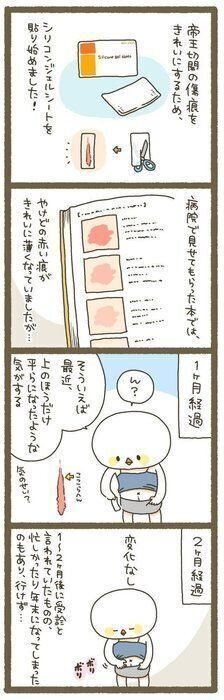 帝王切開の傷痕を
きれいにするため、
シリコンジェルシートを
貼り始めました!
Silicone gel sheet
病院で見せてもらった本では、
やけどの赤い痕が
きれいに薄くなっていましたが…
1ヶ月経過
ん?
そういえば
最近、
上のほうだけ
平らになったような
気がする
気のせい?
2ヶ月経過
変化なし
1〜2ヶ月後に受診と
言われていたものの、
忙しかったり年末になってしまった
のもあり、行けず…
ボリ
ボリ